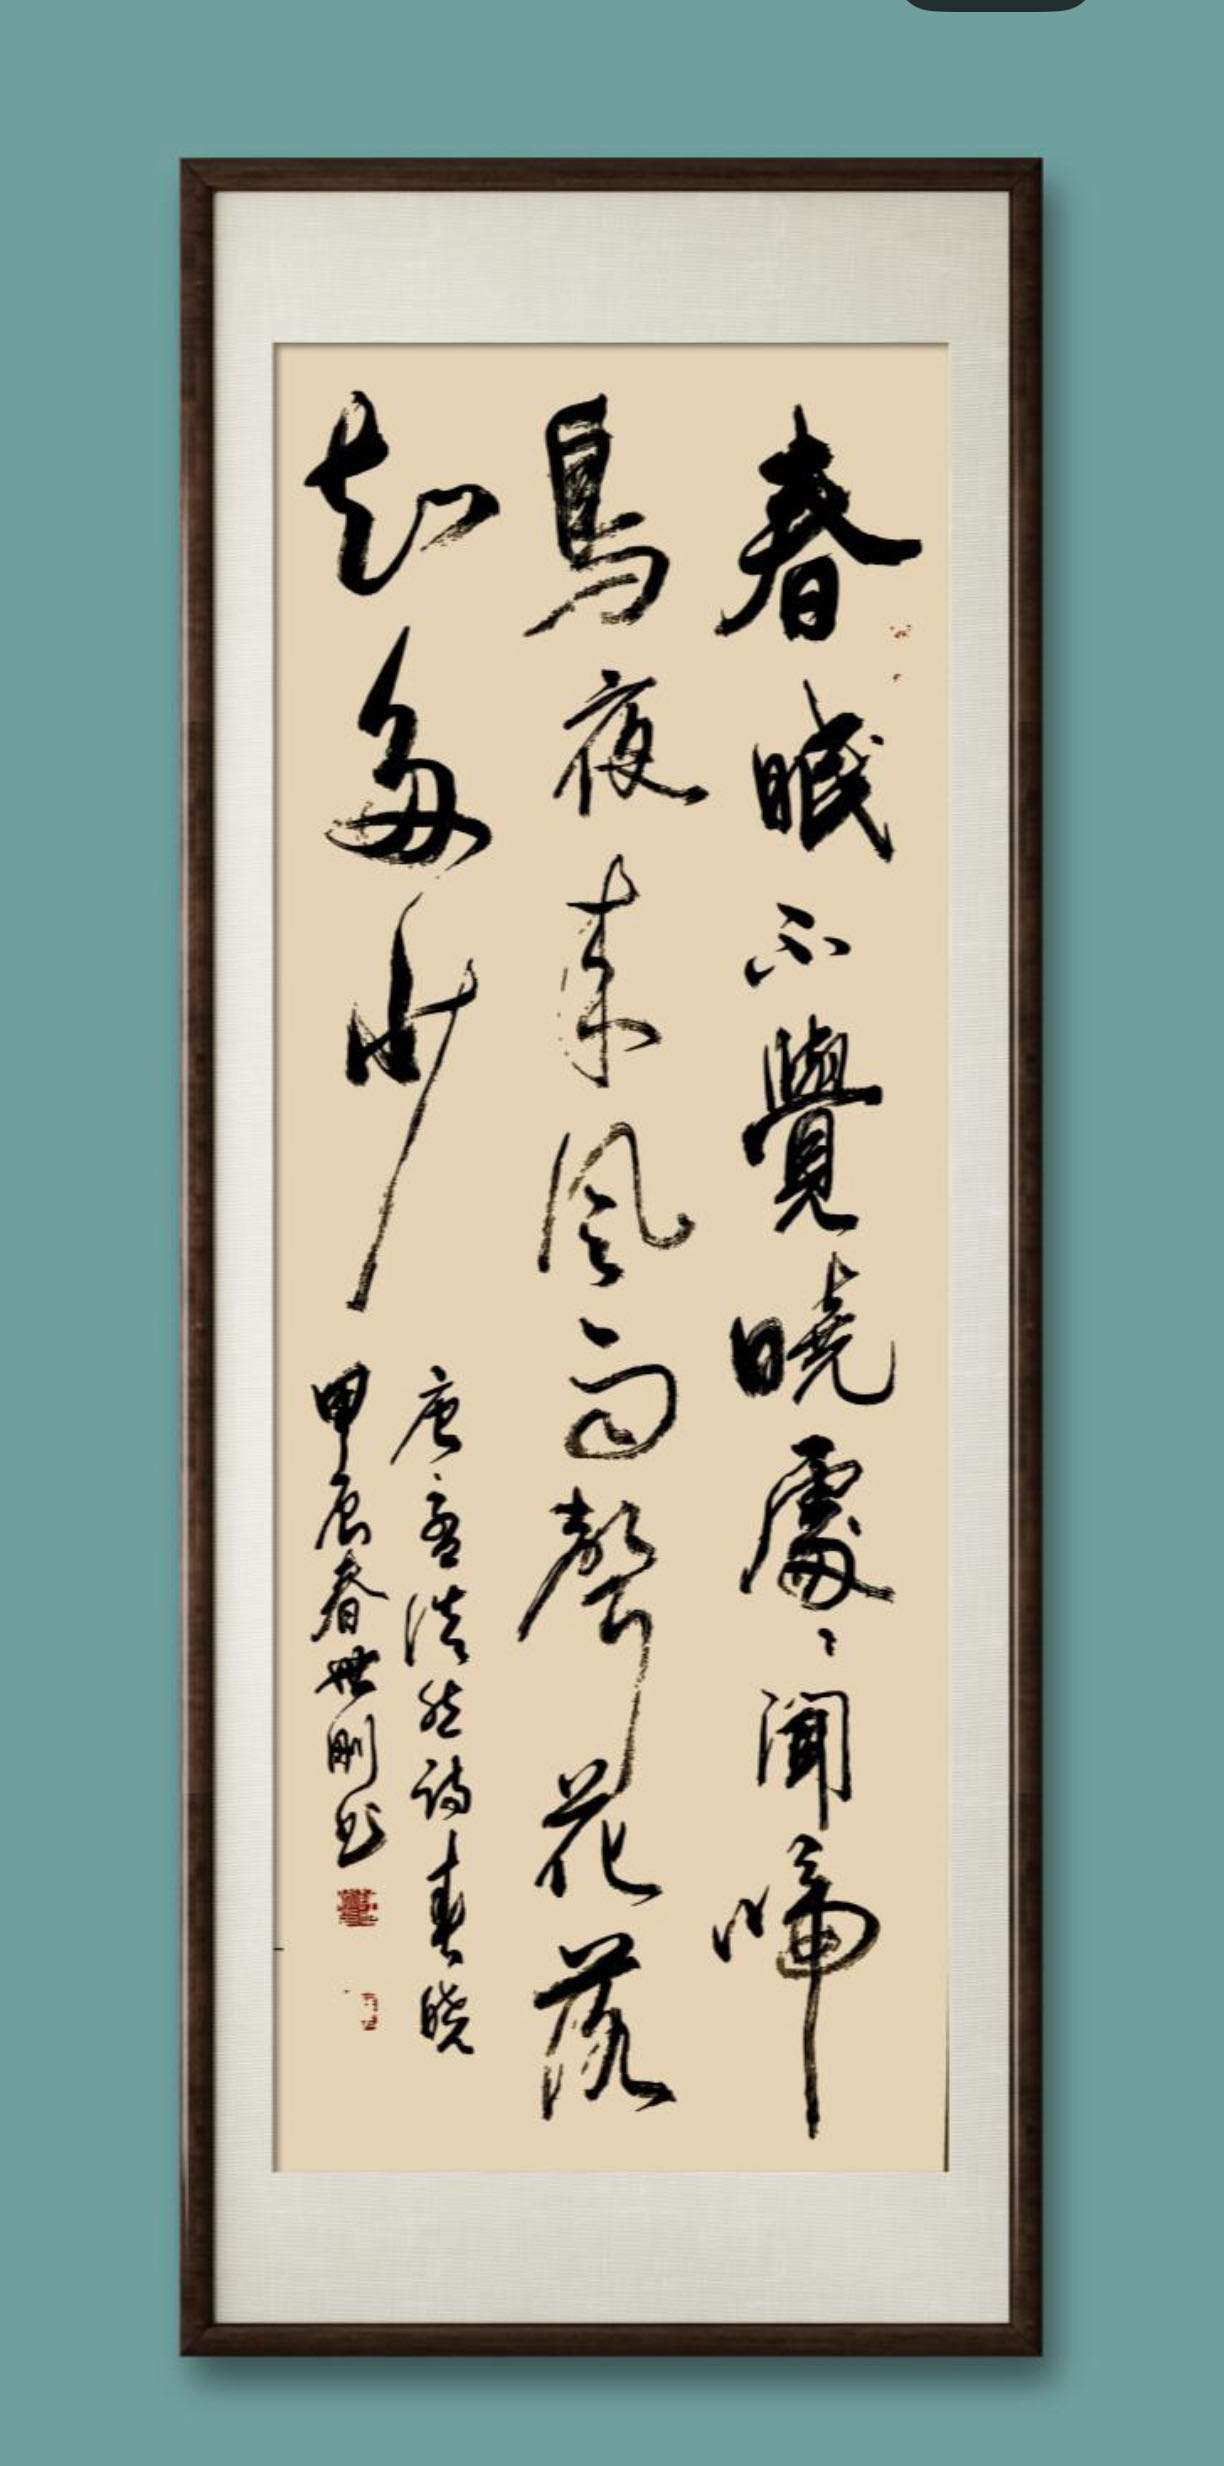 春眠不覺曉處々聞啼
鳥夜来風雨聲花落
知多少
唐孟浩然詩春曉
甲辰春世剛书